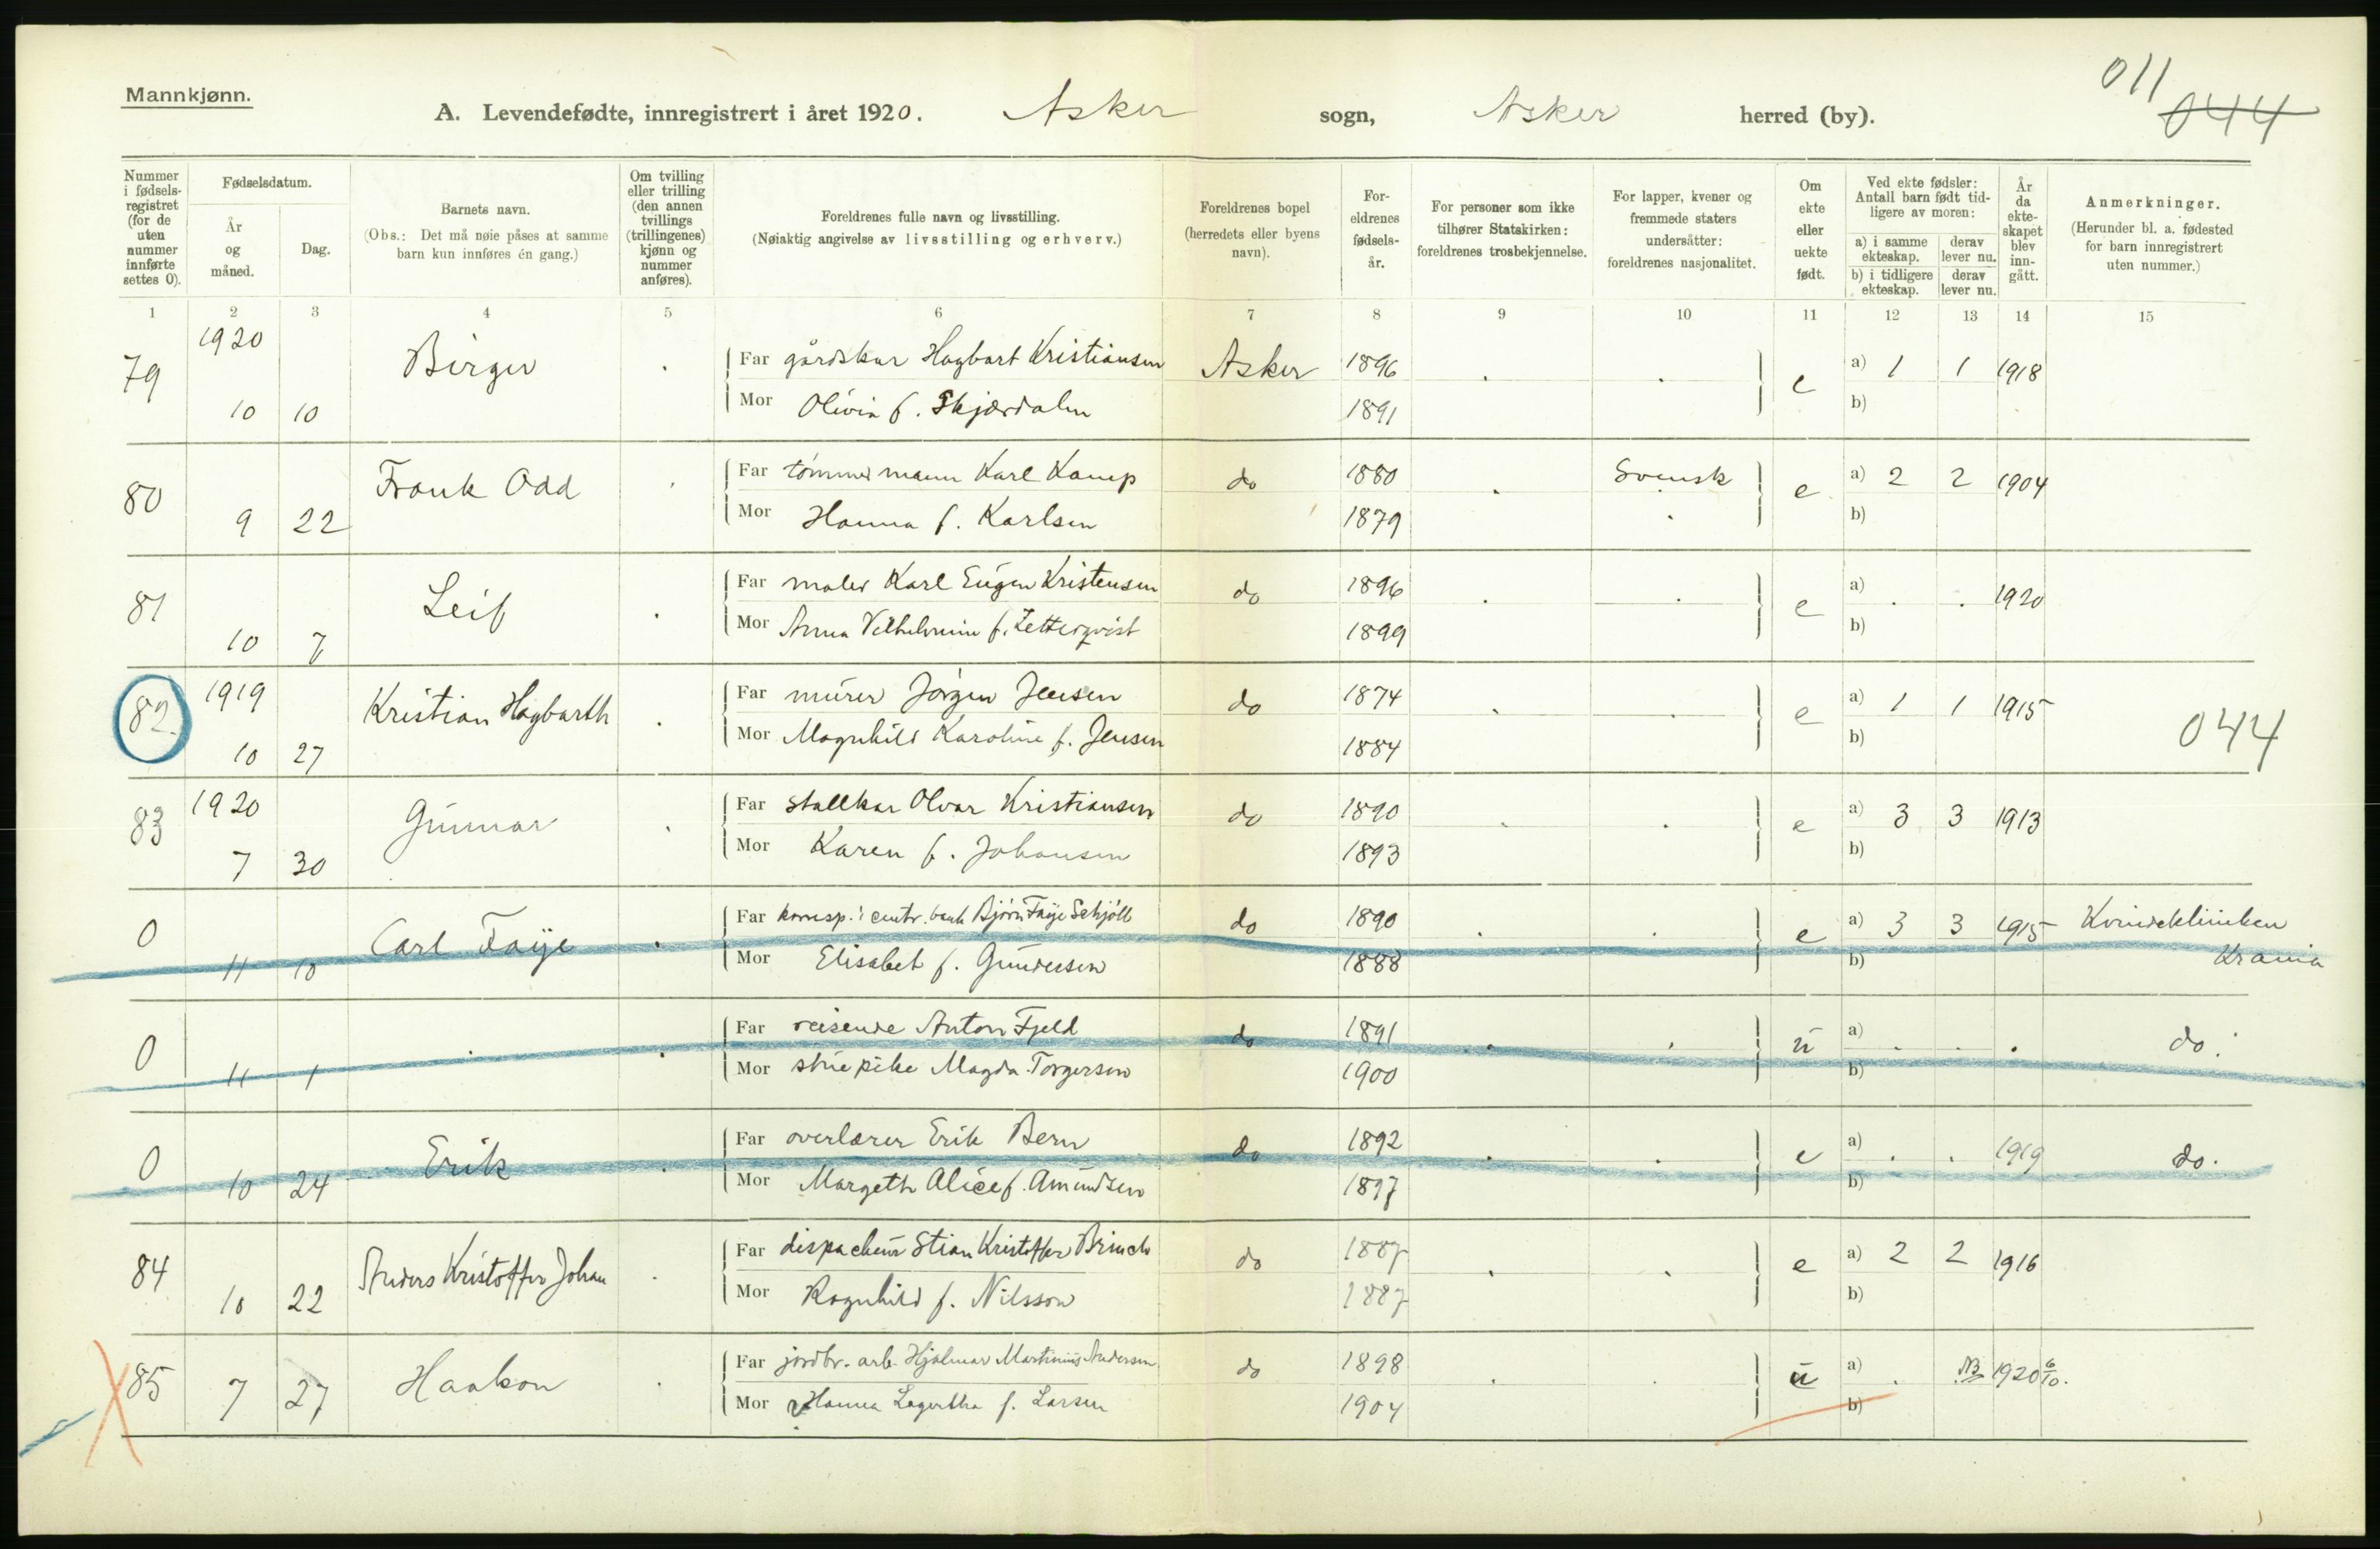 Mannkjønn.
A. Levendefødte, innregistrert i året 1920. Asker sogn, Asker herred (by).
011
044
Nummer i fødsels-registret (for de uten nummer innførte settes 0).
Fødselsdatum.
År og måned.
Dag.
Barnets navn.
(Obs.: Det må nøie påses at samme barn kun innføres én gang.)
Om tvilling eller trilling (den annen tvillings (trillingenes) kjønn og nummer anføres).
Foreldrenes fulle navn og livsstilling.
(Nøiaktig angivelse av livsstilling og erhverv.)
Foreldrenes bopel (herredets eller byens navn).
For-eldrenes fødsels-år.
For personer som ikke tilhører Statskirken: foreldrenes trosbekjennelse.
For lapper, kvener og fremmede staters undersåtter: foreldrenes nasjonalitet.
Om ekte eller uekte født.
Ved ekte fødsler: Antall barn født tid-ligere av moren:
a) i samme ekteskap.
derav lever nu.
b) i tidligere ekteskap.
derav lever nu.
År da ekte-skapet blev inn-gått.
Anmerkninger.
(Herunder bl. a. fødested for barn innregistrert uten nummer.)
1 2 3 4 5 6 7 8 9 10 11 12 13 14 15
1920
79 Birger . Far gårdskar Hagbart Kristiansen Asker 1896 . . e a) 1 1 1918
10 10 Mor Olivia f. Skjærdalen 1891 b)
80 Frank Odd . Far tømmermann Karl Kamp do 1880 . Svensk e a) 2 2 1904
9 22 Mor Hanna f. Karlsen 1879 . b)
81 Leif . Far maler Karl Eugen Kristensen do 1896 . . e a) . . 1920
10 7 Mor Anna Vilhelmine f. Zetterqvist 1899 b)
1919
82. Kristian Hagbarth . Far murer Jørgen Jensen do 1874 . . e a) 1 1 1915
10 27 Mor Magnhild Karoline f. Jensen 1884 b) 044
1920
83 Gunnar . Far stallkar Olvar Kristiansen do 1890 . . e a) 3 3 1913
7 30 Mor Karen f. Johansen 1893 b)
0 Carl Faye . Far korresp. i centr. bank Bjørn Faye Schjøll do 1890 . . e a) 3 3 1915 Kvindeklinikken
11 10 Mor Elisabet f. Gundersen 1888 b) Krania
0 . . Far reisende Anton Fjeld do 1891 . . u a) . . . do.
11 1 Mor stuepike Magda Torgersen 1900 b)
0 Erik . Far overlærer Erik Bern do 1892 . . e a) . . 1919 do.
10 24 Mor Margeth Alice f. Amundsen 1897 b)
84 Anders Kristoffer Johan . Far dispacheur Stian Kristoffer Brinch do 1887 . . e a) 2 2 1916
10 22 Mor Ragnhild f. Nilsson 1887 b)
85 Haakon . Far jordbr. arb. Hjalmar Martinius Andersen do 1898 . . u a) . NB 1920 6/10.
7 27 Mor Hanna Lagertha f. Larsen 1904 b)